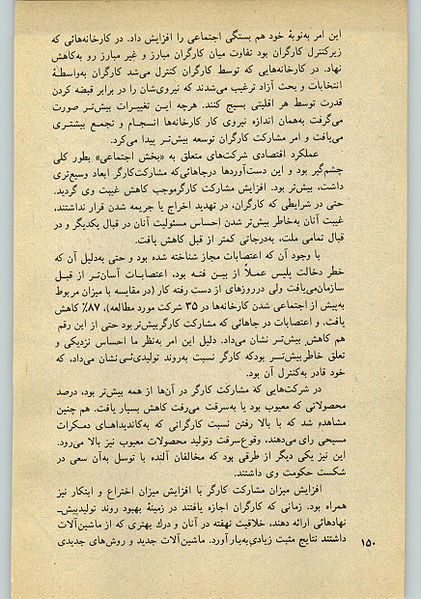 این امر به‌نوبهٔ خود هم بستگی اجتماعی را افزایش داد. در کارخانه‌هائی که
زیرکنترل کارگران بود تفاوت میان کارگران مبارز و غیر مبارز رو به‌کاهش
نهاد. در کارخانه‌هایی که توسط کارگران کنترل می‌شد کارگران به‌واسطهٔ
انتخابات و بحث آزاد ترغیب می‌شدند که نیروی‌شان را در برابر قبضه کردن
قدرت توسط هر اقلیتی بسیج کنند. هرچه این تغییرات بیش‌تر صورت
می‌گرفت به‌همان اندازه نیروی کار کارخانه‌ها انسجام و تجمع بیشتری
می‌یافت و امر مشارکت کارگران توسعه بیش‌تر پیدا می‌کرد.
عملکرد اقتصادی شرکت‌های متعلق به «بخش اجتماعی» بطور کلی
چشم‌گیر بود و این دست‌آوردها درجاهائی‌که مشارکت‌کارگر ابعاد وسیع‌تری
داشت، بیش‌تر بود. افزایش مشارکت کارگرموجب کاهش غیبت وی گردید.
حتی در شرایطی که کارگران، در تهدید اخراج یا جریمه شدن قرار نداشتند،
غیبت آنان به‌خاطر بیش‌تر شدن احساس مسئولیت آنان در قبال یکدیگر و در
قبال تمامی ملت، به‌درجاتی کمتر از قبل کاهش یافت.
با وجود آن که اعتصابات مجاز شناخته شده بود و حتی به‌دلیل آن که
خطر دخالت پلیس عملاً از بین رفته بود، اعتصابات آسان‌تر از قبل
سازمان‌می‌یافت ولی درروزهای از دست رفته کار (در مقایسه با میزان مربوط
به‌پیش از اجتماعی شدن کارخانه‌ها در ۳۵ شرکت مورد مطالعه)، ۸۷٪ کاهش
یافت. و اعتصابات در جاهائی که مشارکت کارگربیش‌تر بود حتی از این رقم
هم کاهش بیش‌تر نشان می‌داد. دلیل این امر به‌نظر ما احساس نزدیکی و
تعلق خاطر بیش‌تر بودکه کارگر نسبت به‌روند تولیدی‌ئی نشان می‌داد، که
خود قادر به‌کنترل آن بود.
در شرکت‌هایی که مشارکت کارگر در آن‌ها از همه بیش‌تر بود، درصد
محصولاتی که معیوب بود یا به‌سرقت می‌رفت کاهش بسیار یافت. هم چنین
مشاهده شد که با بالا رفتن نسبت کارگرانی که به‌کاندیداهای دمکرات
مسیحی رای می‌دهند، وقوع‌سرقت وتولید محصولات معیوب نیز بالا می‌رود.
این نیز یکی دیگر از طرقی بود که مخالفان آلنده با توسل به‌آن سعی در
شکست حکومت وی داشتند.
افزایش میزان مشارکت کارگر با افزایش میزان اختراع و ابتکار نیز
همراه بود. زمانی که کارگران اجازه یافتند در زمینهٔ بهبود روند تولیدپیش‌ـ
نهادهائی ارائه دهند، خلاقیت نهفته در آنان و درک بهتری که از ماشین‌آلات
داشتند نتایج مثبت زیادی‌به‌بارآورد. ماشین‌آلات جدید و روش‌های جدیدی
۱۵۰